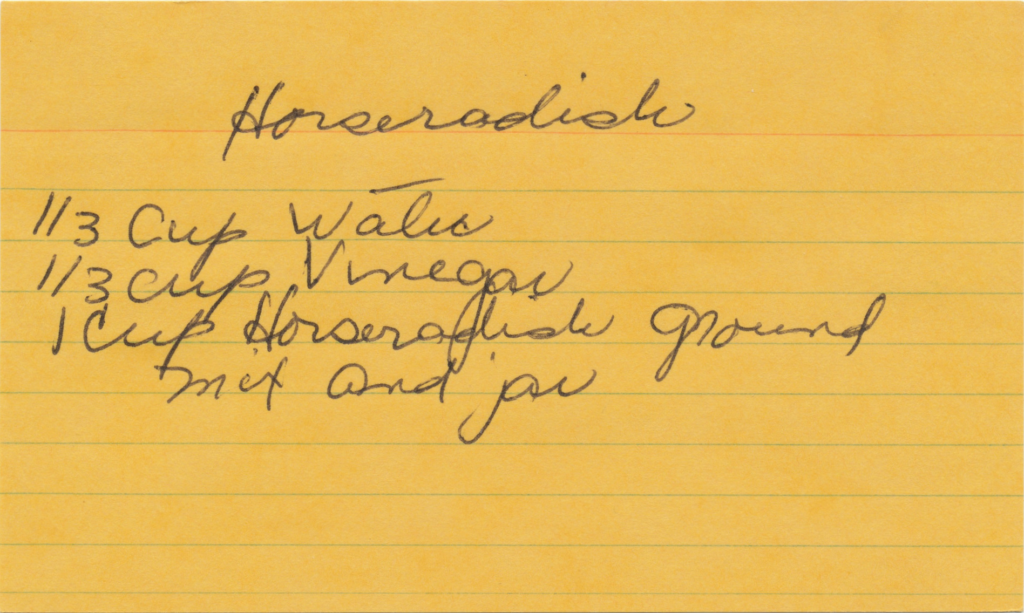 Horseradish
1/3 Cup Water
1/3 cup Vinegar
1 Cup Horseradish Ground
Mix and jar